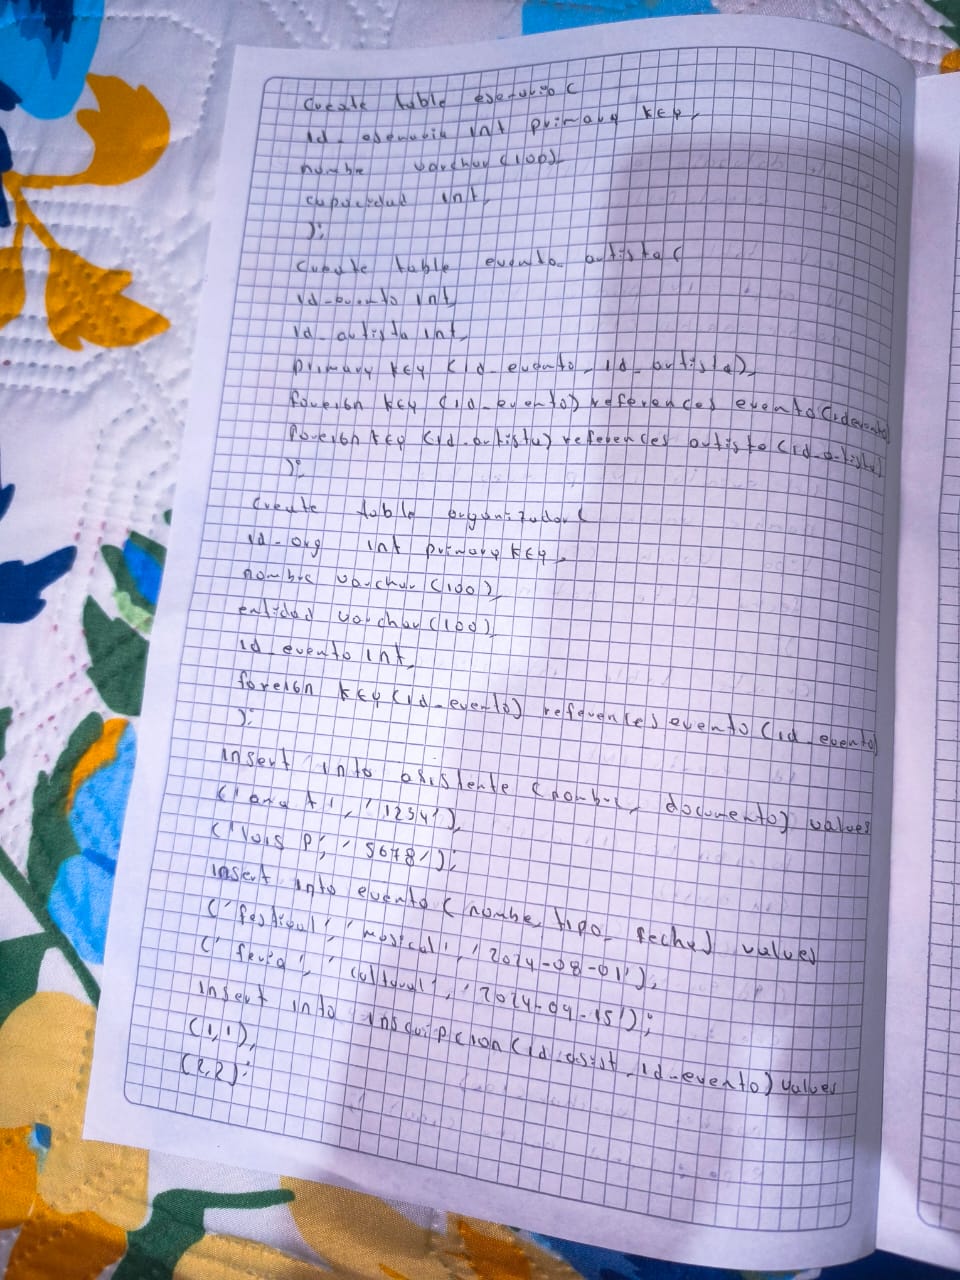 Create table esenario(
id_esenario int primary key,
nombre varchar(100),
capacidad int,
);
Create table evento_artista(
id_evento int,
id_artista int,
primary key (id_evento, id_artista),
foreign key (id_evento) references evento(id evento)
foreign key (id_artista) references artista (id_artista)
);
Create table organizador(
id_org int primary key,
nombre varchar(100),
entidad varchar(100),
id_evento int,
foreign key (id_evento) references evento (id_evento)
);
insert into asistente (nombre, documento) values
('ana t', '1234'),
('luis p', '5678');
insert into evento (nombe, tipo, fecha) values
('festival', 'musical', '2024-08-01'),
('feria', 'cultural', '2024-09-15');
insert into inscripcion (id_asist, id_evento) values
(1,1),
(2,2);